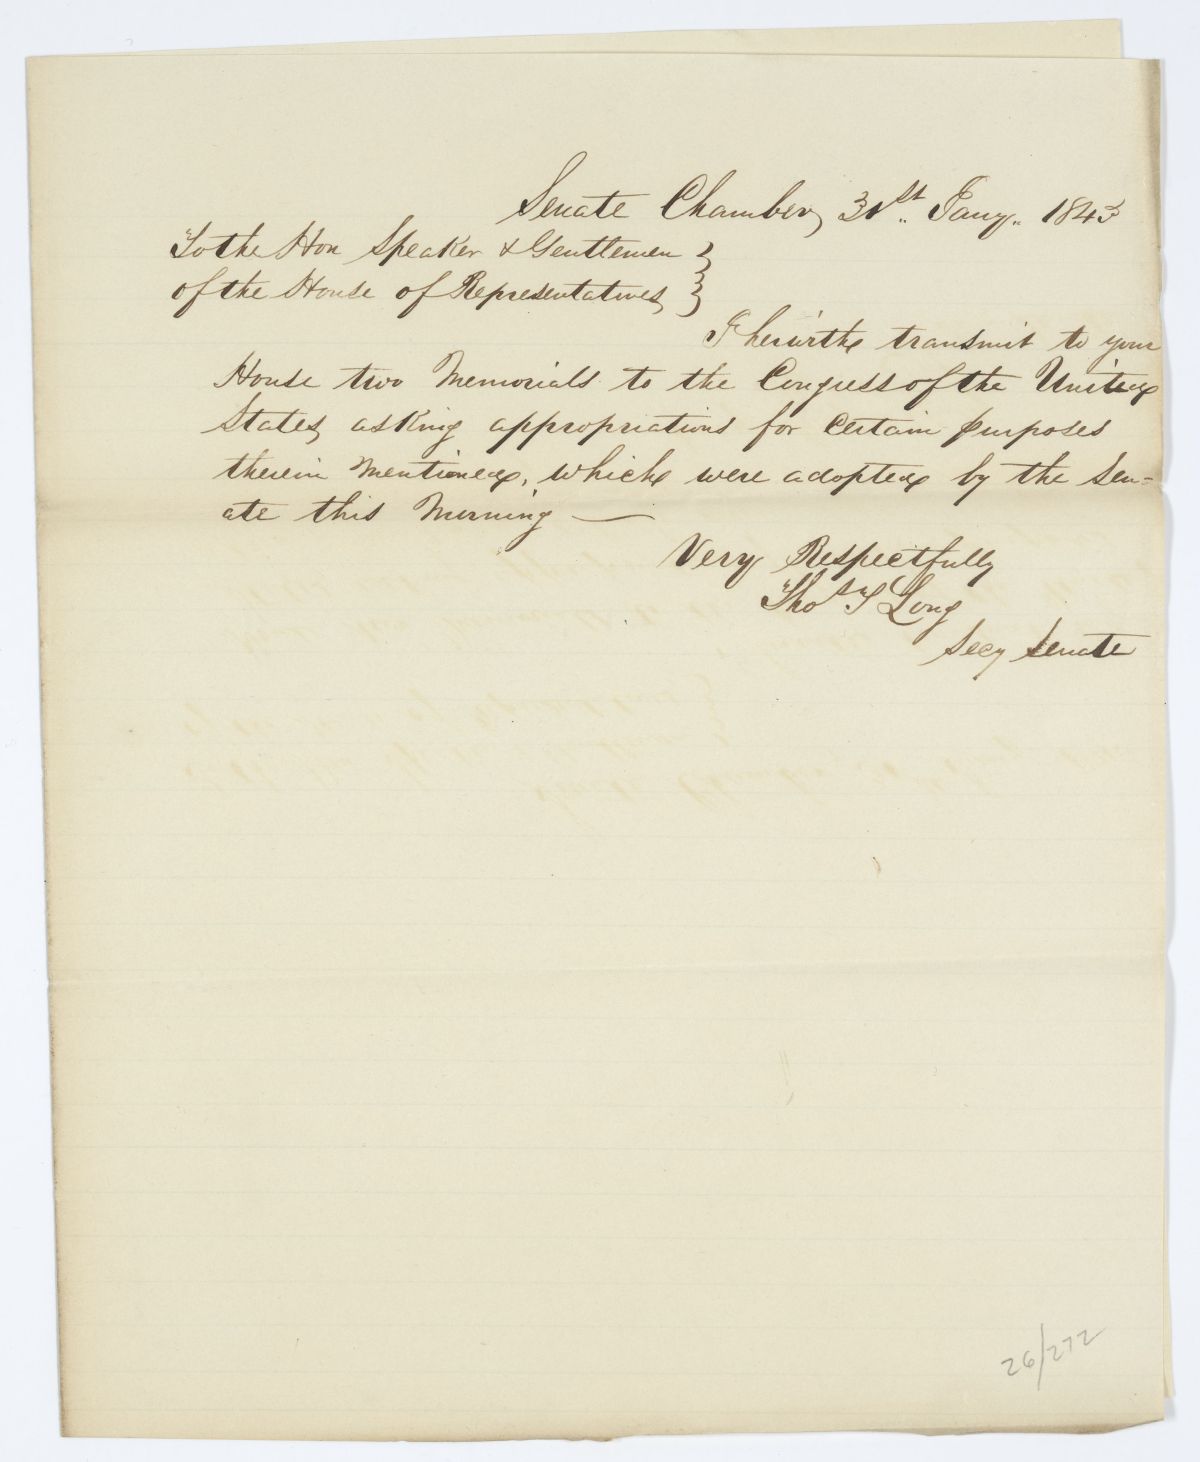 Senate Chamber, 31st. Jany. 1843
To the Hon Speaker & Gentlemen }
of the House of Representatives }
I herewith transmit to your
House two Memorials to the Congress of the United
States, asking appropriations for certain purposes
therein mentioned, which were adopted by the Sen-
ate this Morning —
Very Respectfully
Thos T Long
Secy Senate
26/272